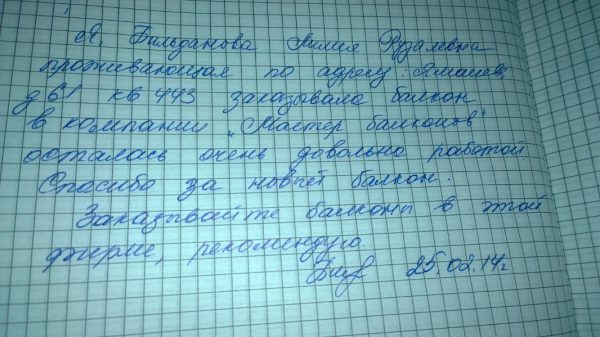 Я, Бильданова Лилия Рузалевна
проживающая по адресу: Ямашев
д 61 кв 443 заказывала балкон
в компании „Мастер балконов"
осталась очень довольна работой
Спасибо за новый балкон.
Заказывайте балконы в этой
фирме, рекомендую.
25.02.14г